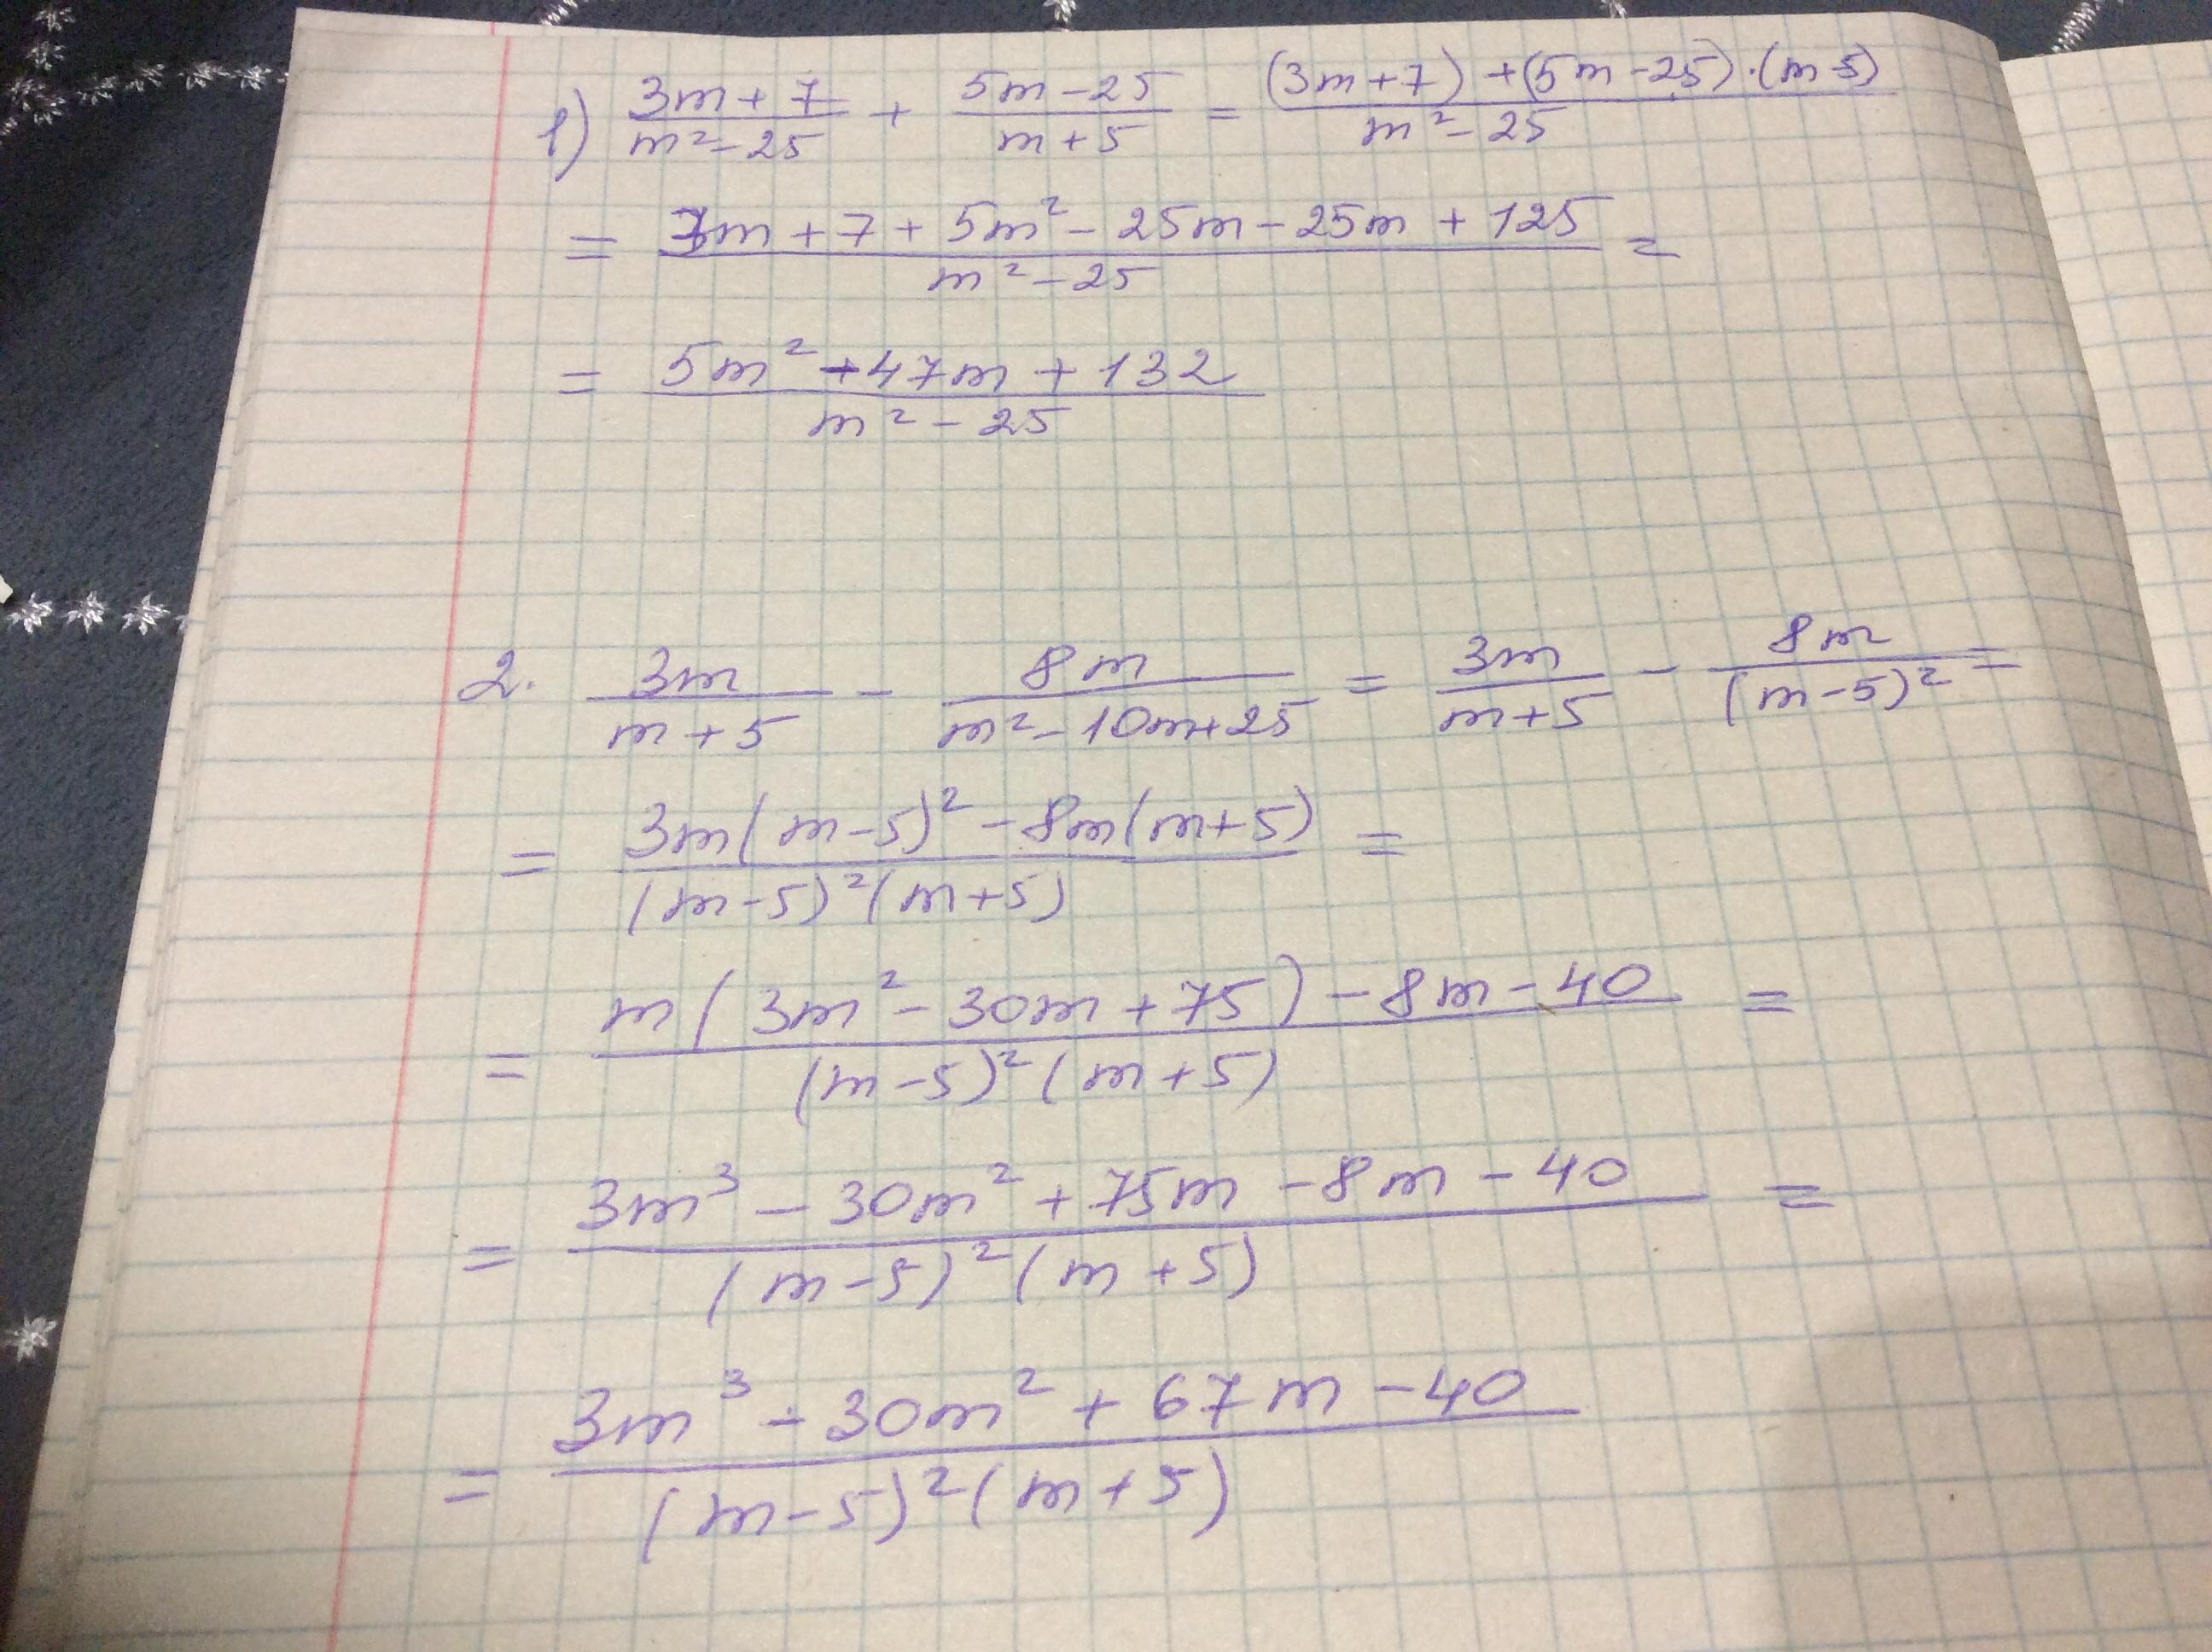 1) (3m+7)/(m²-25) + (5m-25)/(m+5) = ((3m+7)+(5m-25)·(m-5))/(m²-25)
= (3m+7+5m²-25m-25m+125)/(m²-25) =
= (5m²-47m+132)/(m²-25)
2. 3m/(m+5) - 8m/(m²-10m+25) = 3m/(m+5) - 8m/(m-5)² =
= (3m(m-5)²-8m(m+5))/((m-5)²(m+5)) =
= (m(3m²-30m+75)-8m-40)/((m-5)²(m+5)) =
= (3m³-30m²+75m-8m-40)/((m-5)²(m+5)) =
= (3m³-30m²+67m-40)/((m-5)²(m+5))